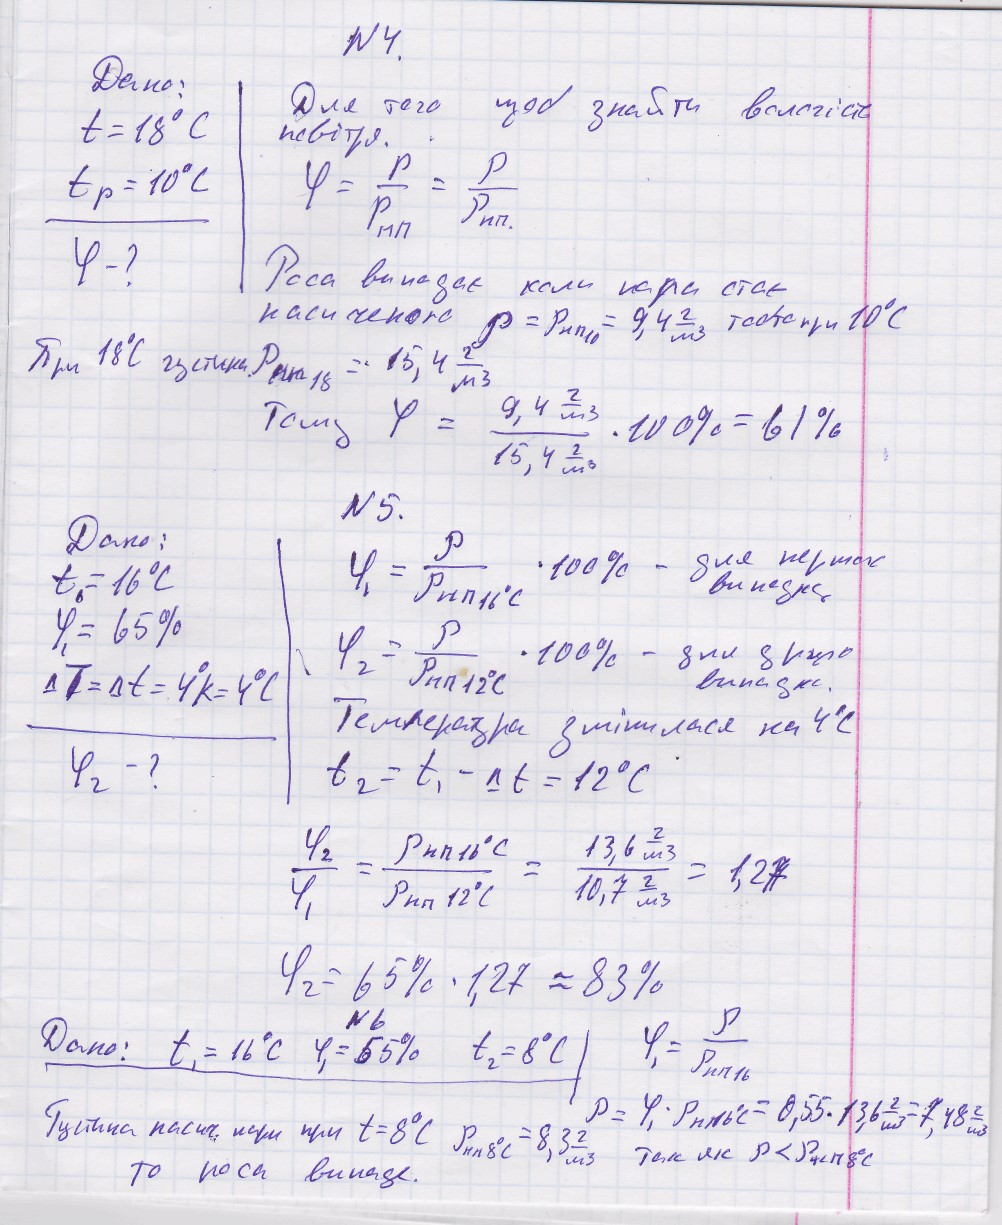 N4.
Дано:
t = 18°C
t р = 10°C
φ - ?
Для того щоб знайти вологість
повітря.
φ = ρ/ρнп = ρ/ρнп.
Роса випадає коли пара стає
насиченою ρ = ρнп10 = 9,4 г/м3 тобто при 10°C
При 18°C густина ρнп18 = 15,4 г/м3
Тому φ = 9,4 г/м3 / 15,4 г/м3 · 100% = 61%
N5.
Дано:
t = 16°C
φ1 = 65%
ΔT = Δt = 4°K = 4°C
φ2 - ?
φ1 = ρ/ρнп16°C · 100% - для першого
випадку
φ2 = ρ/ρнп12°C · 100% - для другого
випадка.
Температура змінилася на 4°C
t2 = t1 - Δt = 12°C
φ2/φ1 = ρнп16°C/ρнп12°C = 13,6 г/м3 / 10,7 г/м3 = 1,27
φ2 = 65% · 1,27 ≈ 83%
N6
Дано: t1 = 16°C φ1 = 55% t2 = 8°C
φ1 = ρ/ρнп16
ρ = φ1 · ρнп16°C = 0,55 · 13,6 г/м3 = 7,48 г/м3
Густина насич. пари при t = 8°C ρнп8°C = 8,3 г/м3 так як ρ < ρнп8°C
то роса випаде.